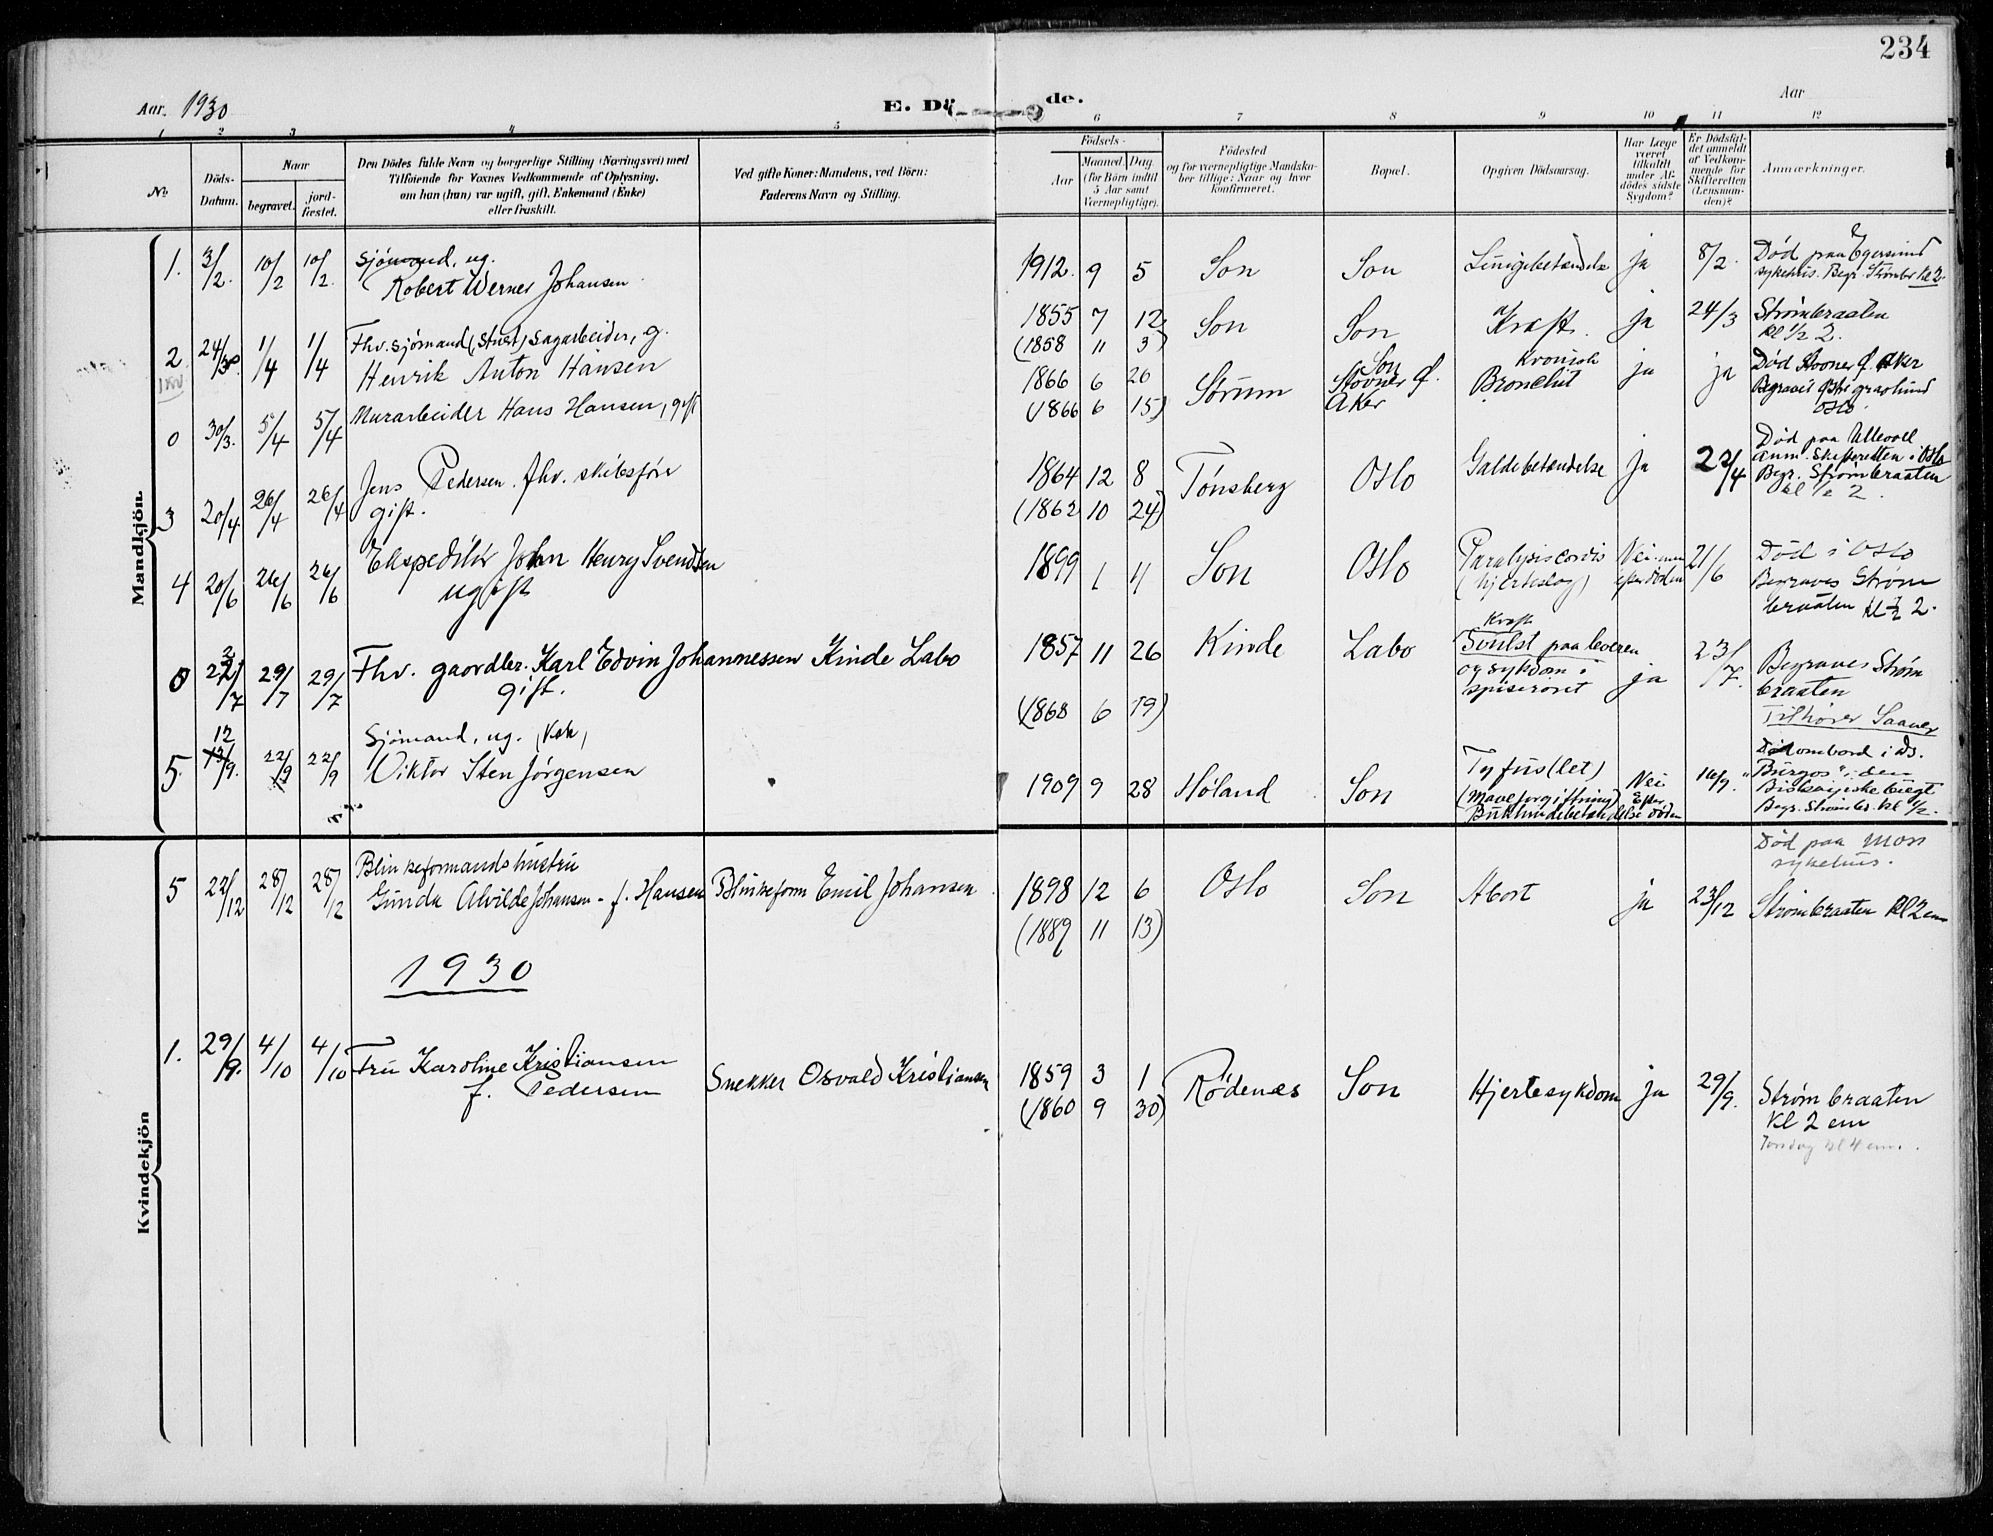 234
Aar. 1930
E. Dö de.
Aar
1 2 3 4 5 6 7 8 9 10 11 12
No
Döds-Datum.
Naar
begravet.
jord-fæstet.
Den Dödes fulde Navn og borgerlige Stilling (Næringsvei) med
Tilföiende for Voxnes Vedkommende af Oplysning,
om han (hun) var ugift, gift, Enkemand (Enke)
eller fraskilt.
Ved gifte Koner: Mandens, ved Börn:
Faderens Navn og Stilling.
Födsels-
Aar
Maaned. Dag.
(for Börn indtil
5 Aar samt
Værnepligtige).
Födested
og for værnepligtige Mandska-
ber tillige: Naar og hvor
konfirmeret.
Bopæl.
Opgiven Dödsaarsag.
Har Læge
været
tilkaldt
under Af-
dödes sidste
Sygdom?
Er Dödsfal-
det anmeldt
af Vedkom-
mende for
Skifteretten
(Lensman-
den)?
Anmærkninger.
Mandkjön.
1. 3/2. 10/2 10/2. Sjömand, ug.
Robert Werner Johansen
1912. 9 5 Son Son ja 8/2. Død paa Egersund
sykehus. Begr. Strømbr kl 2.
2 24/3 1/4 1/4 Fhv. sjømand, sagarbeider, g.
Henrik Anton Hansen
1855 7 12 Son Son Kræft. ja 24/3 Strømbraaten
kl 1/2 2.
(1858 11 3)
0 30/3. 5/4 5/4 Murarbeider Hans Hansen, gift
1866 6 20 Sørum Son
Stovner Ø.
Aker
Kronisk
Bronchit ja ja Død Stovner Ø. Aker
Begravet Østre gravlund
Oslo.
(1866 6 15)
3 20/4. 26/4 26/4 Jens Pedersen. fhv. skibsfører
gift.
1864 12 8 Tønsberg Oslo Galdebetændelse ja 22/4 Død paa Ullevaal
anm. Skifteretten i Oslo
Begr. Strømbraaten
kl 1/2 2.
(1862 10 24)
4 20/6 26/6 26/6 Ekspeditør John Henry Svendsen
ugift
1899 1 11 Son Oslo Paralysis cordis
(hjerteslag) Nei
efter døden 21/6 Død i Oslo
Begraves Strøm
braaten kl 1/2 2.
0 22/7 29/7 29/7 Fhv. gaardbr. Karl Edvin Johannessen Kinde Labo
gift.
1857 11 26 Kinde Labo Kræft
Svulst paa leveren
og sykdom i
spiserøret ja 23/7. Begraves Strøm
braaten
Tilhører Saaner
(1868 6 19)
5. 12
13/9. 22/9 22/9 Sjömand, ug.
Viktor Sten Jørgensen
1909 9 28 Høland Son Tyfus (let)
(Maveforgiftning)
Bukhindebetændelse Nei
Efter
døden 16/9. Død ombord i D/s.
"Burgos" i den
Biskayiske bugt
Begr. Strømbr. kl 1/2.
Kvindekjön
5 22/12 28/12 28/12 Blinkeformandshustru
Gunda Alvilde Johansen - f. Hansen Blinkeform Emil Johansen
1898 12 6 Oslo Son Abort ja 23/12 Død paa Moss
sykehus.
Strømbraaten kl 2 em
(1889 11 13)
1930
1. 29/9. 4/10 4/10 Fru Karoline Kristiansen
f. Pedersen Snekker Osvald Kristiansen
1859 3 1 Rødenæs Son Hjertesykdom ja 29/9. Strømbraaten
kl 2 em
kl 4 em.
(1860 9 30)